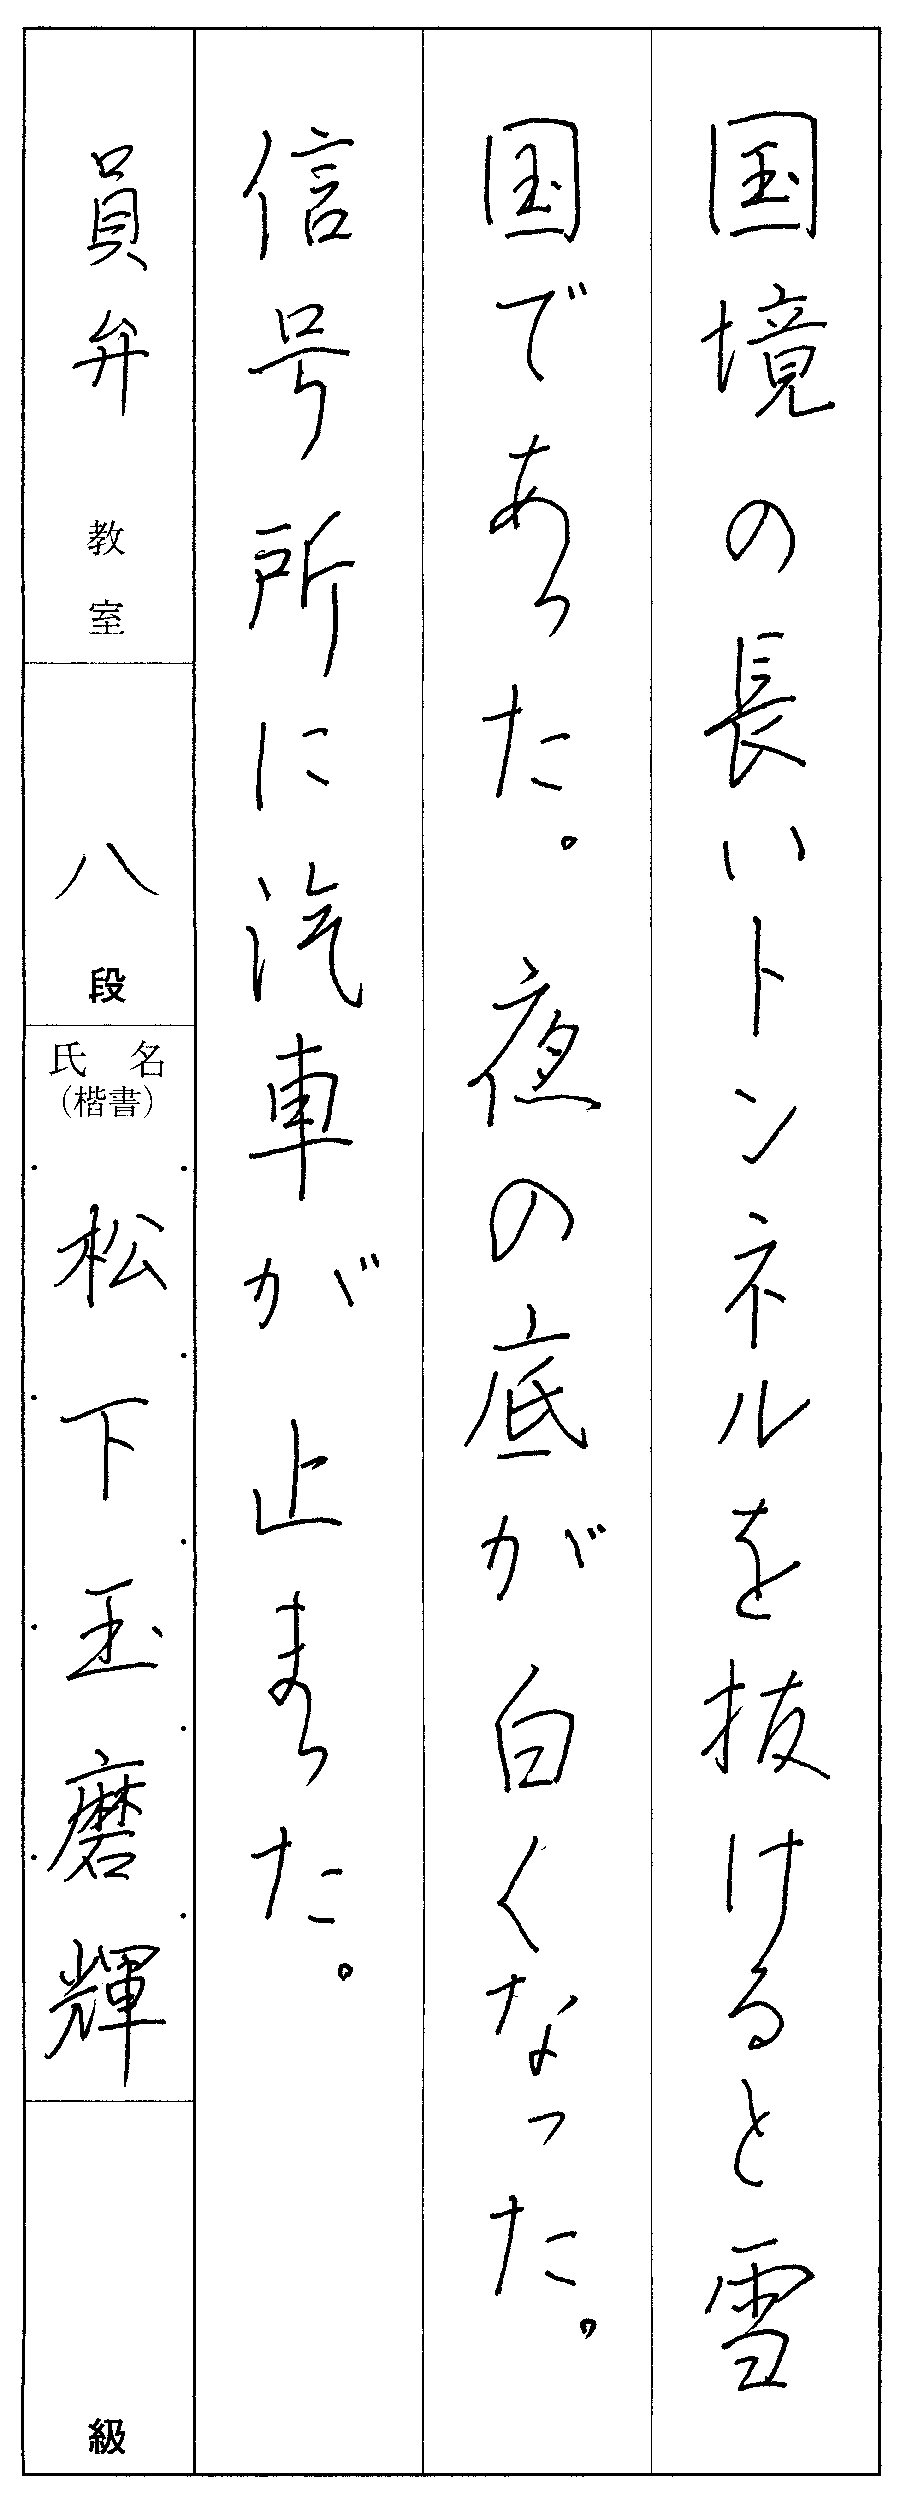 国境の長いトンネルを抜けると雪
国であった。夜の底が白くなった。
信号所に汽車が止まった。
員弁教室
八段
氏名
(楷書)
松下玉磨輝
級